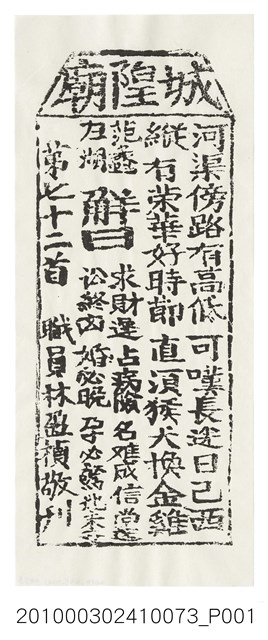 城隍廟
河渠傍路有高低可嘆長途日已西
縱有榮華好時節直須猴犬換金雞
范蠡
解曰
求財遲占病險名难成信尝
訟終凶婚必晚孕必驚
第七十二首
職員林盈禎敬
201000302410073_P001